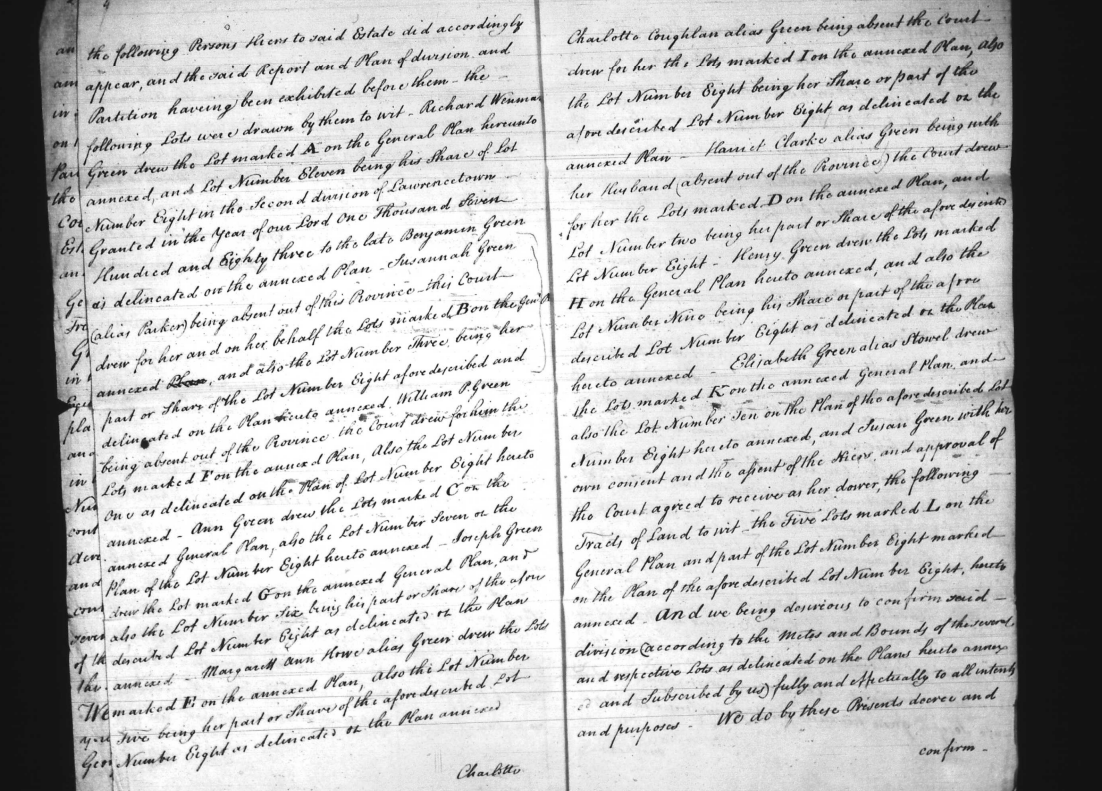 the following Persons Heirs to said Estate did accordingly
appear, and the said Report and Plan of division and
Partition haveing been exhibited before them - the
following Lots were drawn by them to wit - Richard Wenman
Green drew the Lot marked A on the General Plan hereunto
annexed, and Lot Number Eleven being his Share of Lot
Number Eight in the Second division of Lawrencetown
Granted in the Year of our Lord One Thousand Seven
Hundred and Eighty three to the late Benjamin Green
as delineated on the annexed Plan - Susannah Green
(alias Parker) being absent out of this Province this Court
drew for her and on her behalf the Lots marked B on the Genl
annexed Plan, and also the Lot Number Three, being her
part or Share of the Lot Number Eight afore described and
delineated on the Plan hereto annexed. William P. Green
being absent out of the Province the Court drew for him the
Lots marked F on the annexed Plan, Also the Lot Number
One as delineated on the Plan of Lot Number Eight hereto
annexed - Ann Green drew the Lots marked C on the
annexed General Plan, also the Lot Number Seven on the
Plan of the Lot Number Eight hereto annexed - Joseph Green
drew the Lot marked G on the annexed General Plan, and
also the Lot Number Six being his part or Share of the afore
described Lot Number Eight as delineated on the Plan
annexed - Margarett Ann Howe alias Green drew the Lots
marked E on the annexed Plan, Also the Lot Number
Five being her part or Share of the afore described Lot
Number Eight as delineated on the Plan annexed
Charlotte
Charlotte Coughlan alias Green being absent the Court
drew for her the Lots marked I on the annexed Plan, also
the Lot Number Eight being her Share or part of the
afore described Lot Number Eight as delineated on the
annexed Plan - Harriet Clarke alias Green being with
her Husband (absent out of the Province) the Court drew
for her the Lots marked D on the annexed Plan, and
Lot Number two being her part or Share of the afore described
Lot Number Eight - Henry Green drew the Lots marked
H on the General Plan hereto annexed, and also the
Lot Number Nine being his Share or part of the afore
described Lot Number Eight as delineated on the Plan
hereto annexed - Elisabeth Green alias Stowel drew
the Lots marked K on the annexed General Plan, and
also the Lot Number Ten on the Plan of the afore described Lot
Number Eight hereto annexed, and Susan Green with her
own consent and the assent of the Heirs, and approval of
the Court agreed to receive as her dower, the following
Tracts of Land to wit the Five Lots marked L on the
General Plan and part of the Lot Number Eight marked
on the Plan of the afore described Lot Number Eight, hereto
annexed - And we being desirious to confirm said -
division (according to the Metes and Bounds of the several
and respective Lots as delineated on the Plans hereto annex
ed and Subscribed by us) fully and effectually to all intents
and purposes - We do by these Presents decree and
confirm -